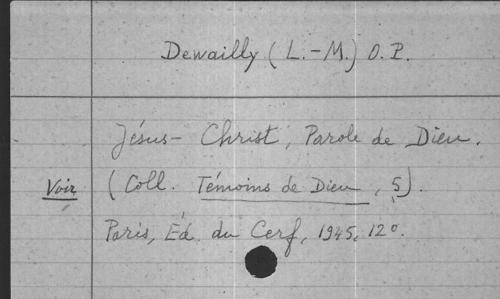 Dewailly (L.-M.) O.P.
Jésus-Christ, Parole de Dieu.
Voir (Coll. Témoins de Dieu, 5).
Paris, Ed. du Cerf, 1945, 12°.